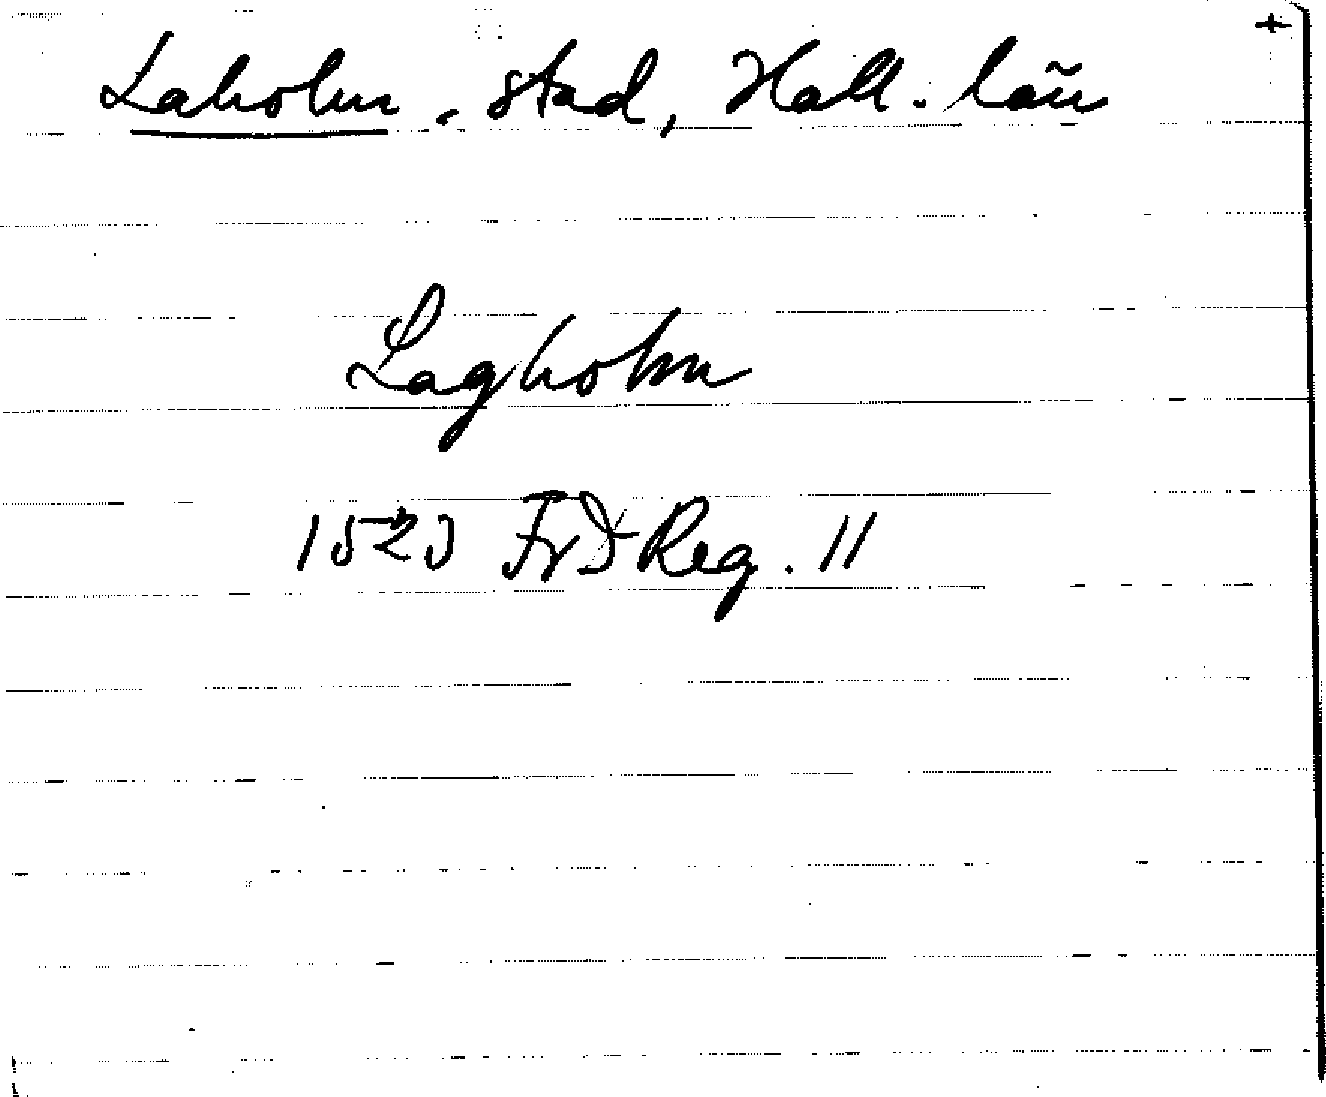 Laholm. stad, Hall. län
Lagholm
1523 FrI Reg. 11